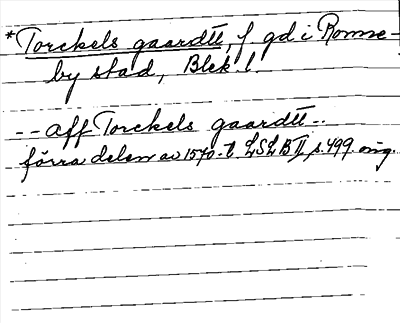 *Torckels gaardtt, f gd i Romne-
by stad, Blek l.
-- aff Torckels gaardtt --
förra delen av 1570-t. LSLB II, s. 499. orig.